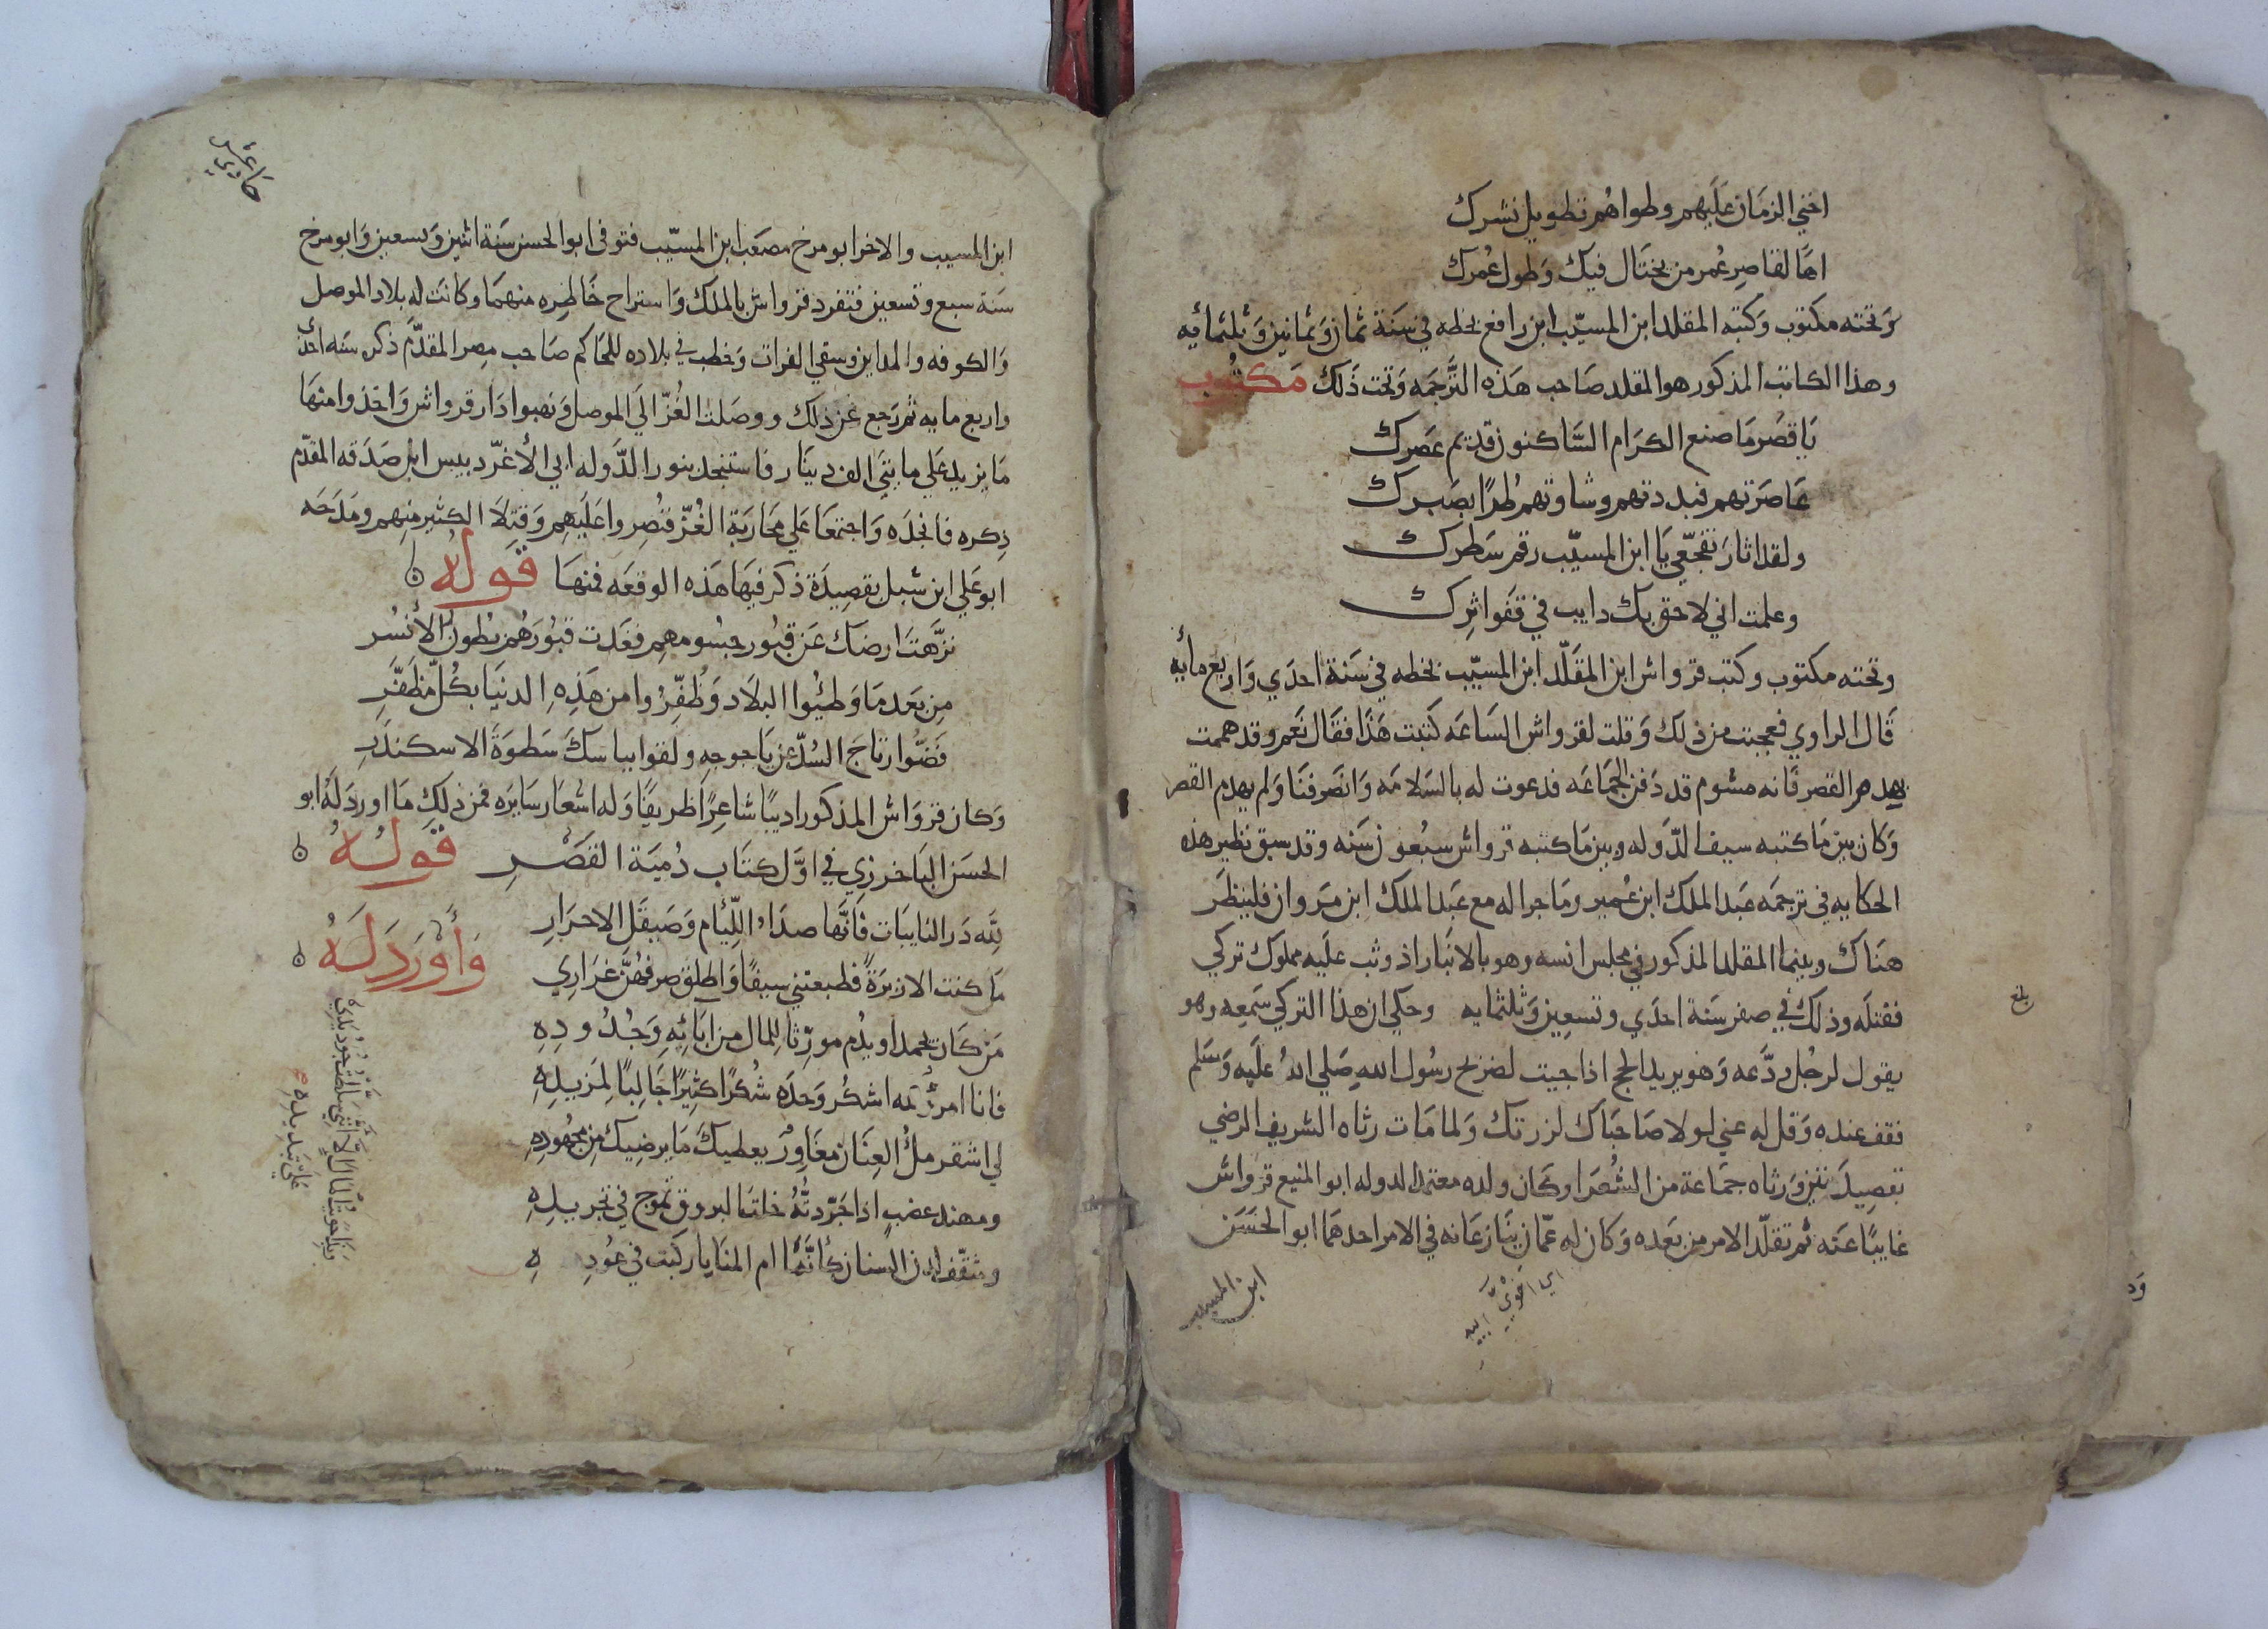 اخني الزمان عليهم وطواهم تطويل نشرك
اها لقاصر عمر من يختال فيك وطول عمرك
وتحته مكتوب وكتبه المقلد ابن المسيّب ابن رافع بخطه في سنة ثمان وثمانين وثلثمائيه
وهذا الكاتب المذكور هو المقلد صاحب هذه الترجمه وتحت ذلك مكتوب
ياقصر ما صنع الكرام الساكنون قديم عصرك
عاصرتهم فبددتهم وشاوتهم طرًا بصبرك
ولقد اثار تفجعي يا ابن المسيّب رقم سطرك
وعلمت اني لاحق بك دايب في قفو اثرك
وتحته مكتوب وكتب قرواش ابن المقلّد ابن المسيّب بخطه في سنة احدي واربع مأيه
قال الراوي فعجبت من ذلك وقلت لقرواش الساعه كتبت هذا فقال نعم وقد هممت
بهدم القصر فانه مشوم قد دفن الجماعه فدعوت له بالسلامه وانصرفنا ولم يهدم القصر
وكان بين ما كتبه سيف الدوله وبين ما كتبه قرواش سبعون سنه وقد سبق نظير هذه
الحكايه في ترجمه عبد الملك ابن عمير وما جرا له مع عبد الملك ابن مروان فلينظر
هناك وبينما المقلد المذكور في مجلس انسه وهو بالانبار اذ وثب عليه مملوك تركي
فقتله وذلك في صفر سنة احدي وتسعين وثلثمايه وحكي ان هذا التركي سمعه وهو
يقول لرجل ودّعه وهو يريد الحج اذا جيت لضريح رسول الله صلي الله عليه وسلم
فقف عنده وقل له عني لولا صاحباك لزرتك ولما مات رثاه الشريف الرضي
بقصيدتين ورثاه جماعة من الشعرا وكان ولده معتمد الدوله ابو المنيع قرواش
غايبًا عنه ثم تقلّد الامر من بعده وكان له عمّان ينازعانه في الامر احدهما ابو الحسن
اي اخوي ابيه
ابن المسيب
بلغ
ابن المسيب والاخر ابو مرخ مصعب ابن المسيّب فتوفى ابو الحسن سنة اثنين وتسعين وابو مرخ
سنة سبع وتسعين فتفرد قرواش بالملك واستراح خاطره منهما وكانت له بلاد الموصل
والكوفه والمداين وسقي الفرات وخطب في بلاده للحاكم صاحب مصر المقدّم ذكره سنه احدى
واربع مايه ثم رجع عن ذلك ووصلت الغُزّ الي الموصل ونهبوا دار قرواش واخذوا منها
ما يزيد علي مايتي الف دينار فاستنجد بنور الدوله ابي الأغرّ دبيس ابن صدقه المقدّم
ذكره فانجده واجتمعا علي محاربة الغُزّ فنُصروا عليهم وقتلا الكثير منهم ومدحه
ابو علي ابن شبل بقصيدة ذكر فيها هذه الوقعه فمنها قوله
نزّهتَ ارضك عن قبور جسومهم فغدت قبورهم بطون الأنسُر
من بعد ما وطئوا البلاد وظُفّروا من هذه الدنيا بكل مظفّر
فضّوا رتاج السدّ عن ياجوجه ولقوا بباسك سطوة الاسكندر
وكان قرواش المذكور اديبًا شاعرًا ظريفًا وله اشعار سايره فمن ذلك ما اورد له ابو
الحسن الباخرزي في اوّل كتاب دُمية القصر قوله
لله در النايبات فانّها صداءُ اللّئام وصيقل الاحرار
ما كنت الا زبرةً فطبعتني سيفًا واطلق صرفهنّ غراري
وأورد له
من كان يحمد او يذم مورّثا للمال من ابائه وجدوده
فانا امرؤ لله اشكر وحده شكرًا كثيرًا جالبًا لمزيده
لي اشقر ملُ العنان مغاور يعطيك ما يرضيك من مجهوده
ومهند عضب اذا جرّدتُه خلت البروق تموج في تجريده
ومثقّف لدن السنان كأنّما ام المنايا ركّبت في عوده
وبذا حويت المال الا انني سلطت جود يدي
علي تبديده